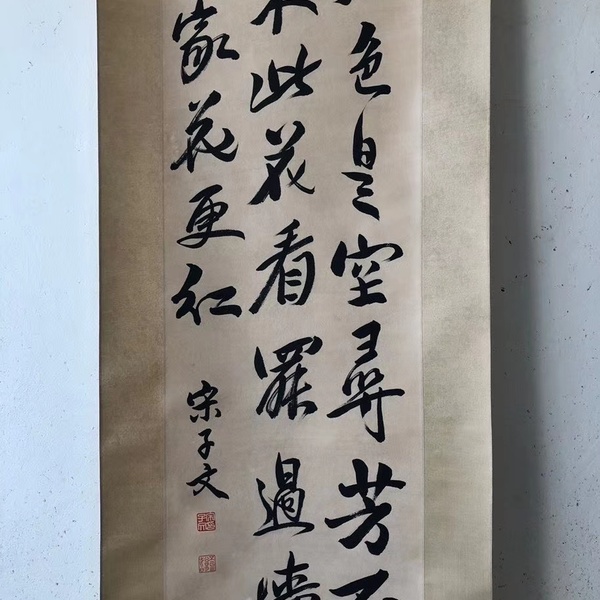 色是空尋芳不
此花看罷過
家花更紅
宋子文